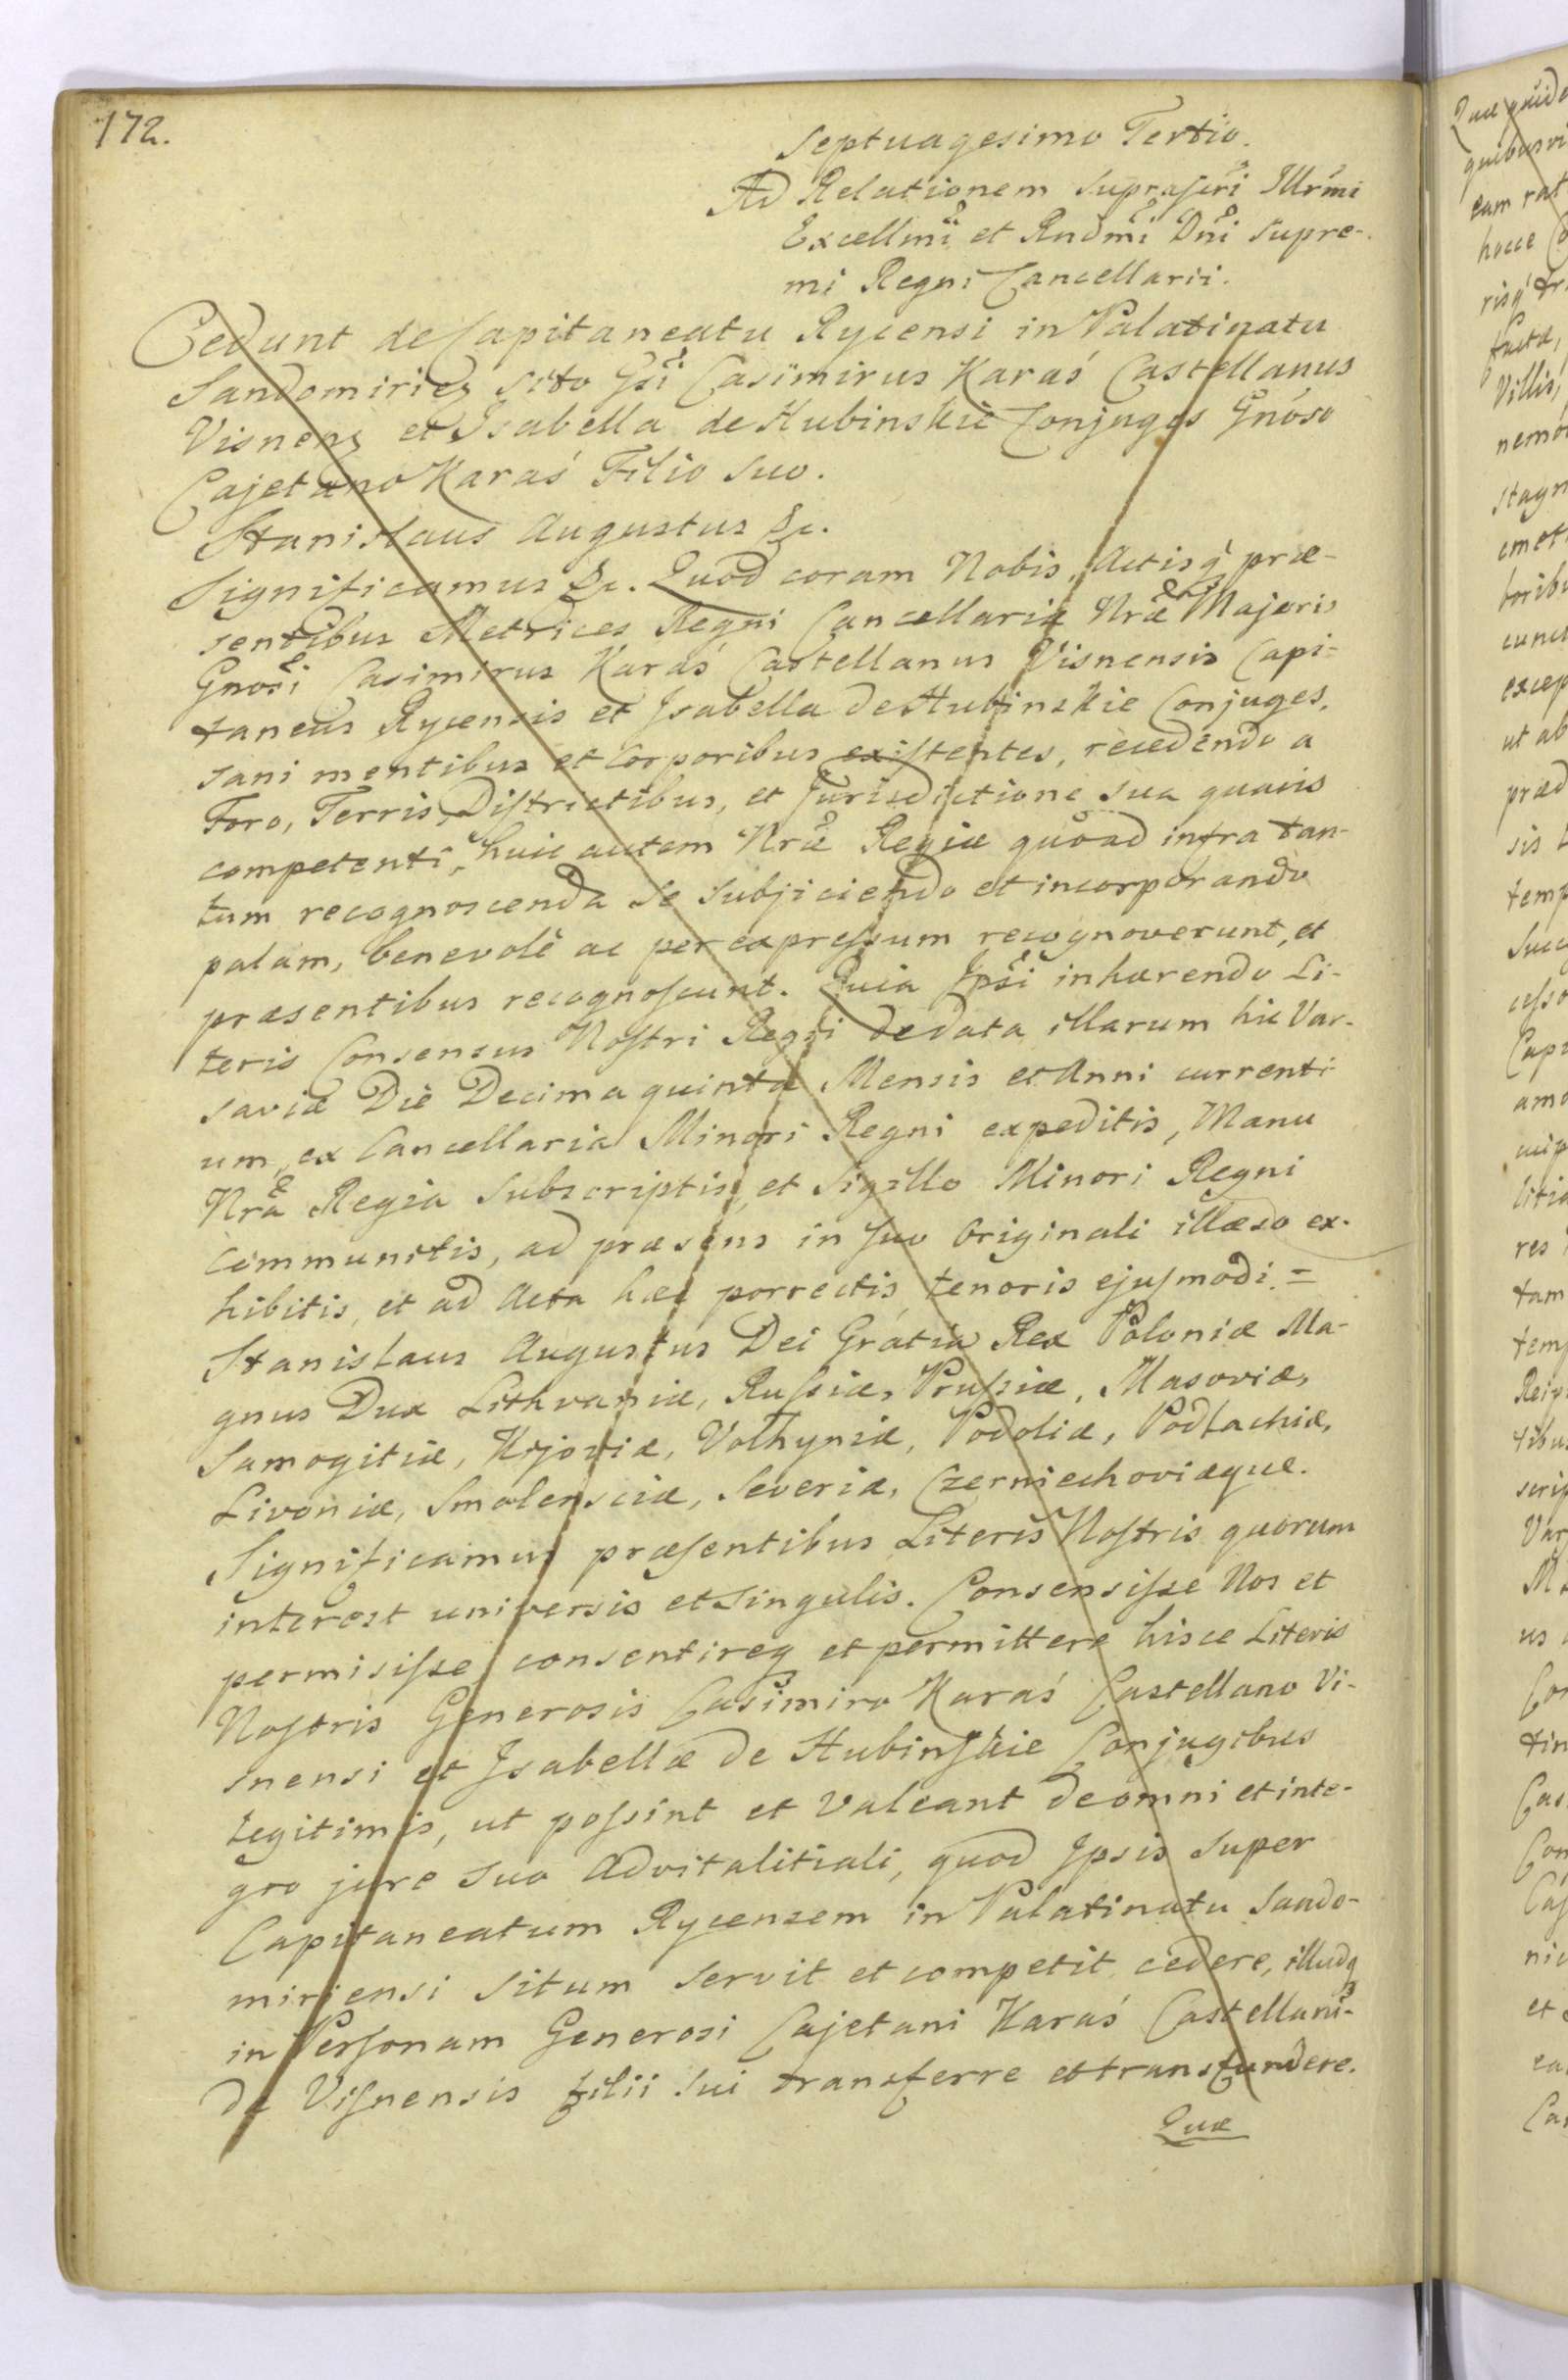 172.
Septuagesimo Tertio.
Ad Relationem Suprascri Illrmi
Excellmi et Rndmi Dni Supre-
mi Regni Cancellarii.
Cedunt de Capitaneatu Rycensi in Palatinatu
Sandomirien sito Gsi Casimirus Karaś Castellanus
Visnens et Isabella de Hubinskie Conjuges Gnoso
Cajetano Karaś Filio Suo.
Stanislaus Augustus &c.
Significamus &c. Quod coram Nobis, Actisq præ-
sentibus Metrices Regni Cancellariæ Nræ Majoris
Gnosi Casimirus Karaś Castellanus Visnensis Capi-
taneus Rycensis et Isabella de Hubinskie Conjuges,
sani mentibus et Corporibus existentes, recedendo a
Foro, Terris, Districtibus, et Jurisdictione sua quavis
competenti, huic autem Nræ Regiæ quoad infra tan-
tum recognoscenda se subjiciendo et incorporando
palam, benevolè ac per expressum recognoverunt, et
præsentibus recognoscunt. Quia Ipsi inhærendo Li-
teris Consensus Nostri Regii de data illarum hic Var-
saviæ Die Decima quinta Mensis et Anni currenti-
um, ex Cancellaria Minori Regni expeditis, Manu
Nra Regia Subscriptis, et Sigillo Minori Regni
communitis, ad præsens in suo Originali illæso ex-
hibitis, et ad Acta hæc porrectis, tenoris ejusmodi =
Stanislaus Augustus Dei Gratia Rex Poloniæ Ma-
gnus Dux Lithvaniæ, Russiæ, Prussiæ, Masoviæ,
Samogitiæ, Kijoviæ, Volhyniæ, Podoliæ, Podlachiæ,
Livoniæ, Smolensciæ, Severiæ, Czerniechoviæque.
Significamus præsentibus Literis Nostris quorum
interest universis et Singulis. Consensisse Nos et
permisisse consentireq et permittere hisce Literis
Nostris Generosis Casimiro Karaś Castellano Vi-
snensi et Isabellæ de Hubinskie Conjugibus
legitimis, ut possint et valeant de omni et inte-
gro jure suo Advitalitiali, quod Ipsis super
Capitaneatum Rycensem in Palatinatu Sando-
miriensi situm servit et competit, cedere, illudq
in Personam Generosi Cajetani Karaś Castellani-
dæ Visnensis filii sui transferre et transfundere.
Quæ